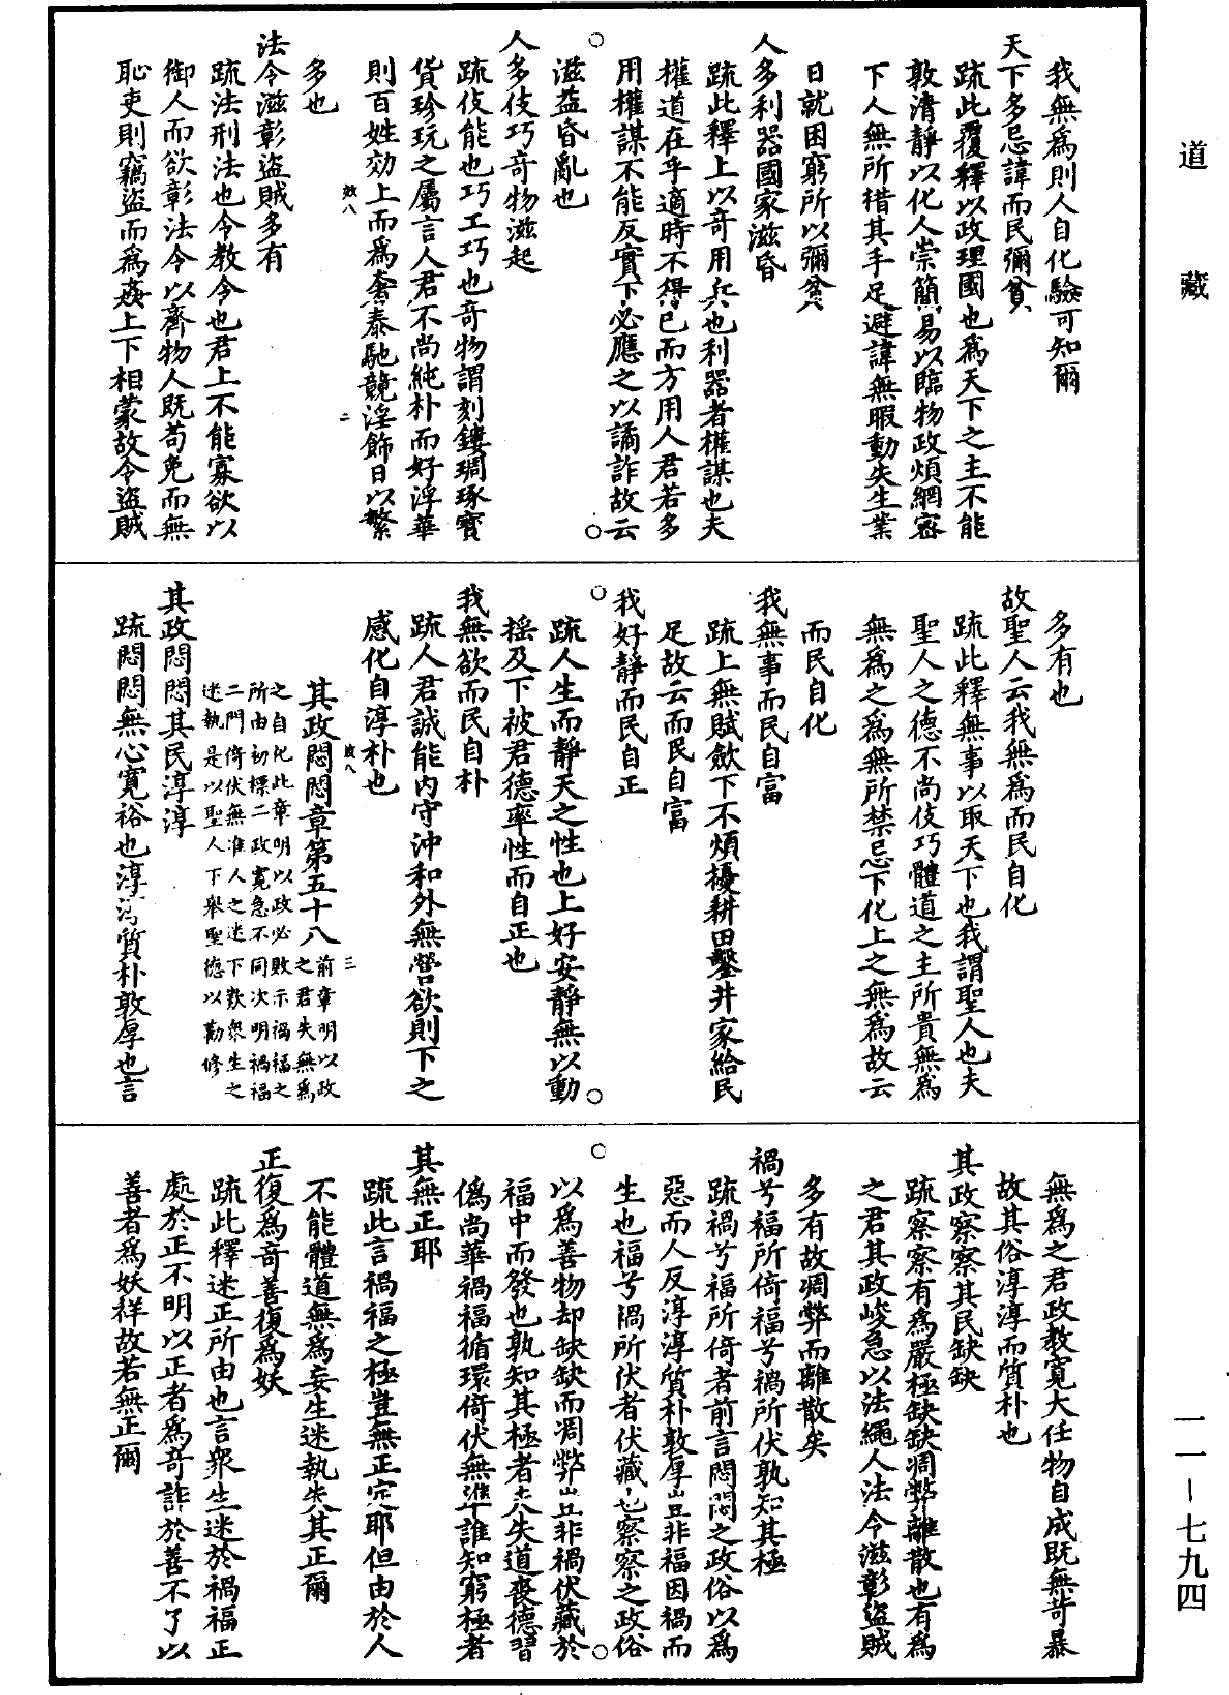 道藏
我無爲則人自化驗可知爾
天下多忌諱而民彌貧
疏此覆釋以政理國也爲天下之主不能
敦清靜以化人崇簡易以臨物政煩網密
下人無所措其手足避諱無暇動失生業
日就困窮所以彌貧
人多利器國家滋昏
疏此釋上以奇用兵也利器者權謀也夫
權道在乎適時不得已而方用人君若多
用權謀不能反實下必應之以譎詐故云
滋益昏亂也
人多伎巧奇物滋起
疏伎能也巧工巧也奇物謂刻鏤琱琢寳
貨珍玩之屬言人君不尚純朴而好浮華
則百姓効上而爲奢泰馳競淫飾日以繁
效八
二
多也
法令滋彰盜賊多有
疏法刑法也令教令也君上不能寡欲以
御人而欲彰法令以齊物人既苟免而無
恥吏則竊盜而爲姦上下相蒙故令盜賊
多有也
故聖人云我無爲而民自化
疏此釋無事以取天下也我謂聖人也夫
聖人之德不尚伎巧體道之主所貴無爲
無爲之爲無所禁忌下化上之無爲故云
而民自化
我無事而民自富
疏上無賦斂下不煩擾耕田鑿井家給民
足故云而民自富
我好靜而民自正
疏人生而靜天之性也上好安靜無以動
搖及下被君德率性而自正也
我無欲而民自朴
疏人君誠能內守沖和外無營欲則下之
感化自淳朴也
效八
三
其政悶悶章第五十八前章明以政
之君失無爲
之自化此章明以政必敗示禍福之
所由初標二政寬急不同次明禍福
二門倚伏無准人之迷下歎衆生之
迷執是以聖人下舉聖德以勸修
其政悶悶其民淳淳
疏悶悶無心寬裕也淳淳質朴敦厚也言
無爲之君政教寬大任物自成既無苛暴
故其俗淳淳而質朴也
其政察察其民缺缺
疏察察有爲嚴極缺缺凋弊離散也有爲
之君其政峻急以法繩人法令滋彰盜賊
多有故凋弊而離散矣
禍兮福所倚福兮禍所伏孰知其極
疏禍兮福所倚者前言悶悶之政俗以爲
惡而人反淳淳質朴敦厚豈非福因禍而
生也福兮禍所伏者伏藏也察察之政俗
以爲善物却缺缺而凋弊豈非禍伏藏於
福中而發也孰知其極者夫失道喪德習
僞尚華禍福循環倚伏無準誰知窮極者
其無正耶
疏此言禍福之極豈無正定耶但由於人
不能體道無爲妄生迷執失其正爾
正復爲奇善復爲妖
疏此釋迷正所由也言衆生迷於禍福正
處於正不明以正者爲奇詐於善不了以
善者爲妖祥故若無正爾
一一—七九四